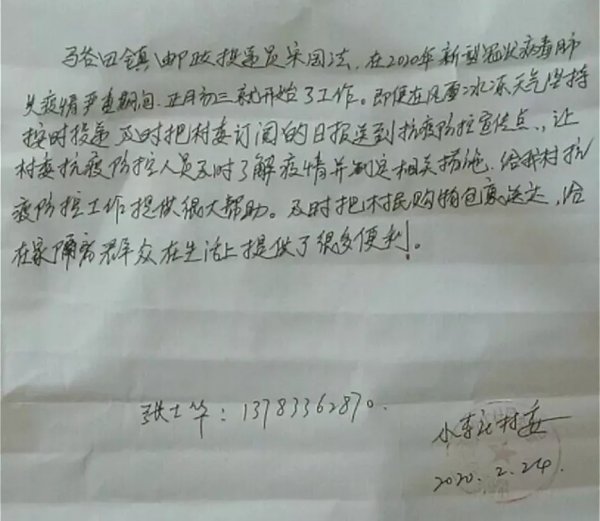 马谷田镇邮政投递员宋国法，在2020年新型冠状病毒肺
炎疫情严重期间，正月初三就开始了工作。即使在风雪冰冻天气坚持
按时投递，及时把村委订阅的日报送到抗疫防控宣传点，让
村委抗疫防控人员及时了解疫情并制定相关措施，给我村抗
疫防控工作提供很大帮助。及时把村民购物包裹送达，给
在家隔离群众在生活上提供了很多便利。
张士华：13783362870.
小李庄村委
2020.2.24.